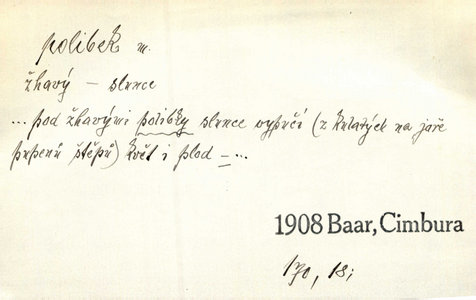 polibek m.
žhavý – slunce
... pod žhavými polibky slunce vypučí (z kulatých na jaře
pupenů štěpů) květ i plod – ...
1908 Baar, Cimbura
170, 18;